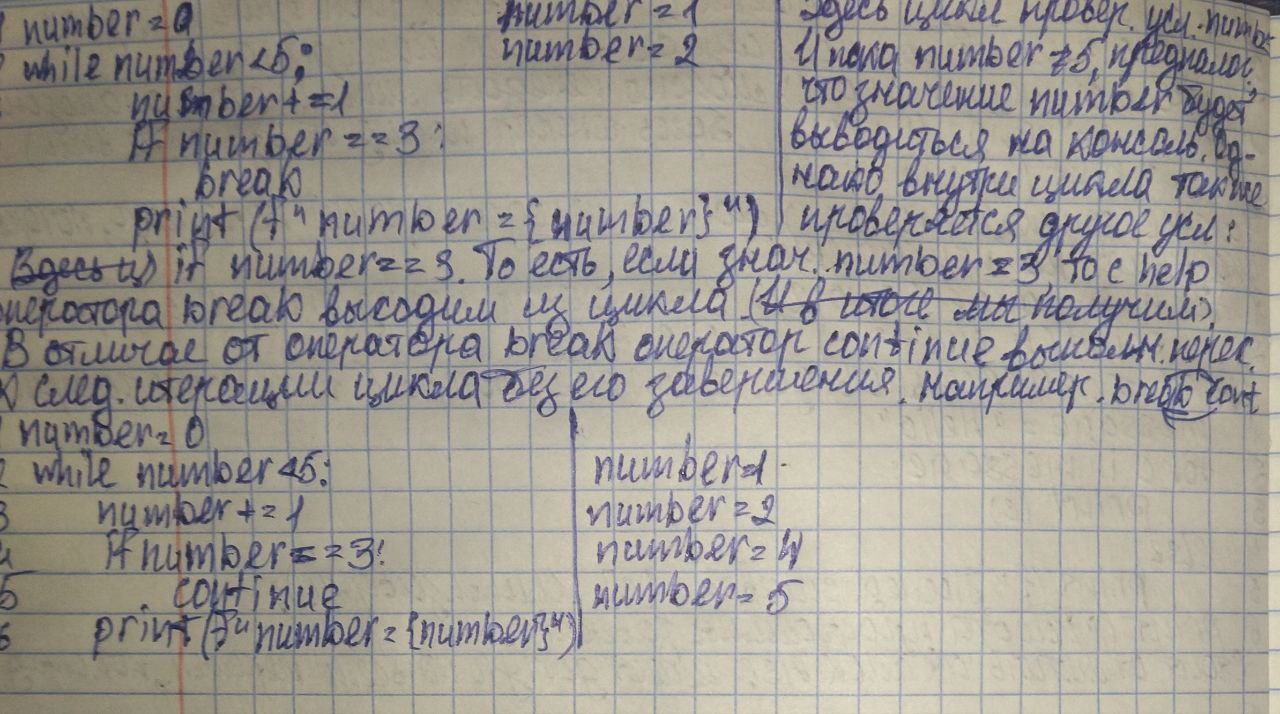 1 number = 0
2 while number < 5:
number += 1
if number == 3:
break
print(f"number = {number}")
number = 1
number = 2
Здесь цикл провер. усл. number
И пока number ≠ 5, предполаг.,
что значение number будет
выводиться на консоль. Од-
нако внутри цикла также
проверяется другое усл:
if number == 3. То есть, если знач. number = 3, то с help
оператора break выходим из цикла (И в итоге мы получим).
В отличие от оператора break оператор continue выполн. перех.
к след. итерации цикла без его завершения. Например. break cont
1 number = 0
2 while number < 5:
3 number += 1
4 if number == 3:
5 continue
6 print(f"number = {number}")
number = 1
number = 2
number = 4
number = 5